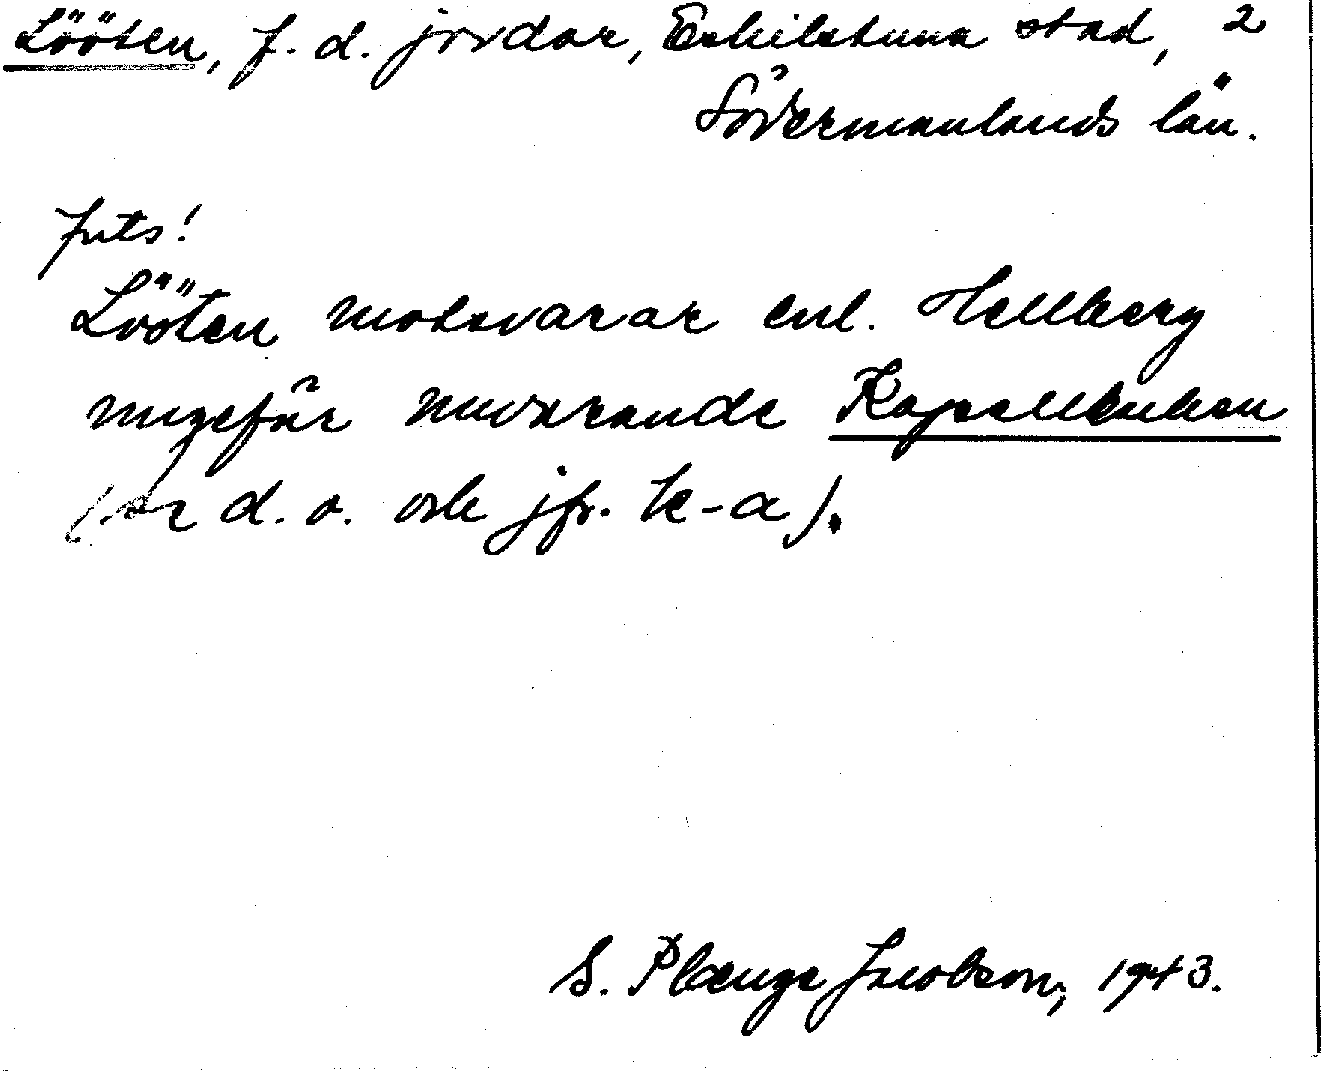 Lööten, f. d. jordar, Eskilstuna stad, 2
Södermanlands län.
forts!
Lööten motsvarar enl. Hellberg
ungefär nuvarande Kapellbuken
(se d. o. och jfr. k-a).
S. Plænge Jacobson, 1943.